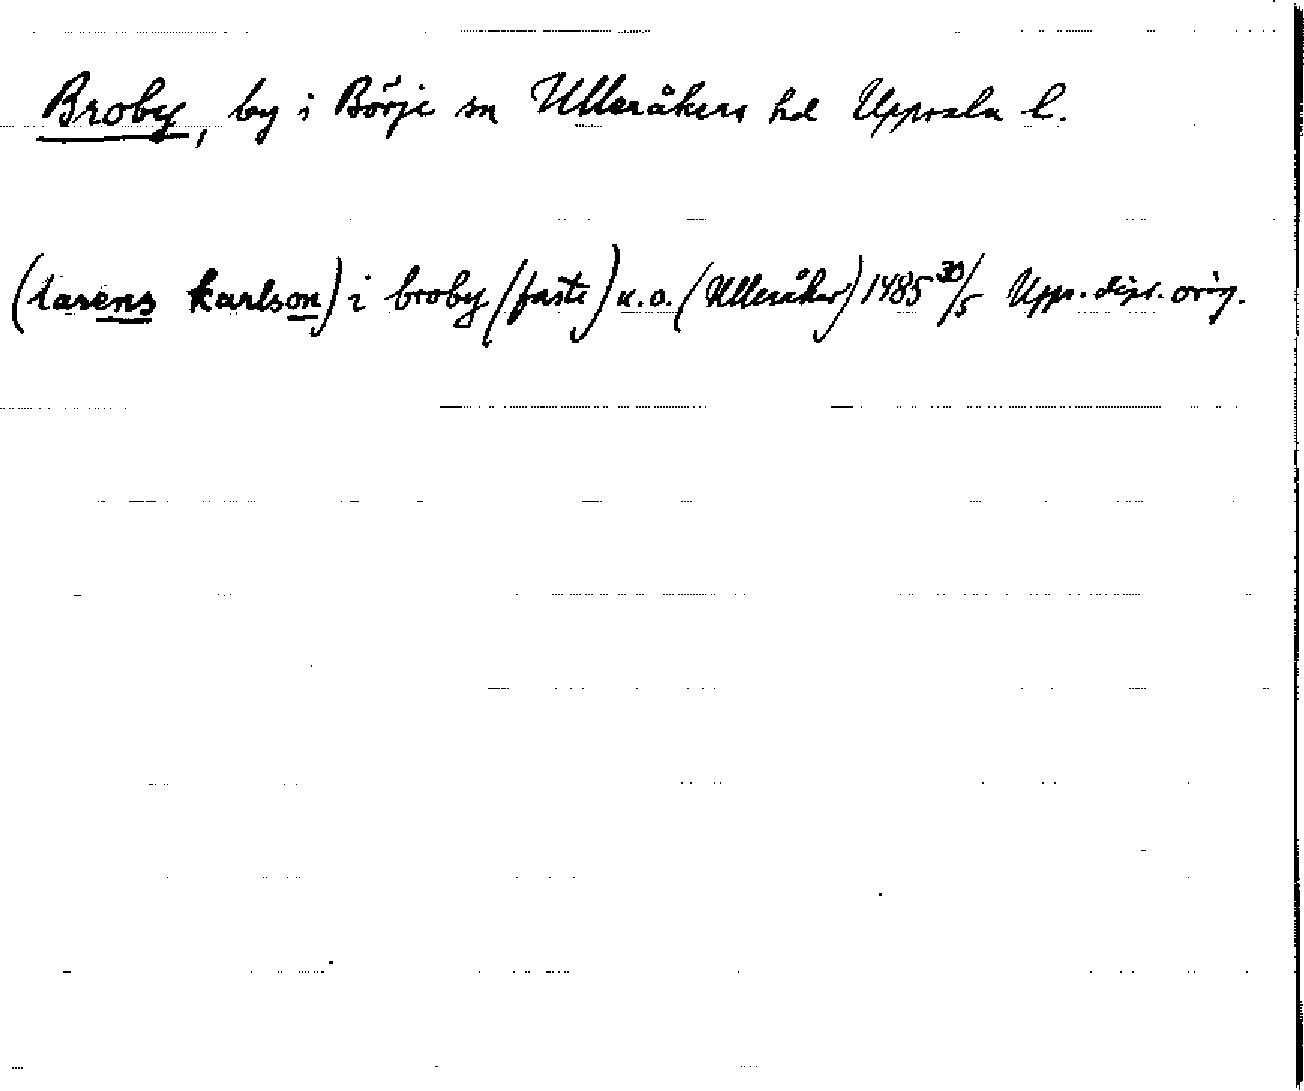 Broby, by i Börje sn Ulleråkers hd Uppsala l.
(larens karlson) i broby (faste) u.o. (Ulleråker) 1485 30/5 Upps. dipl. orig.